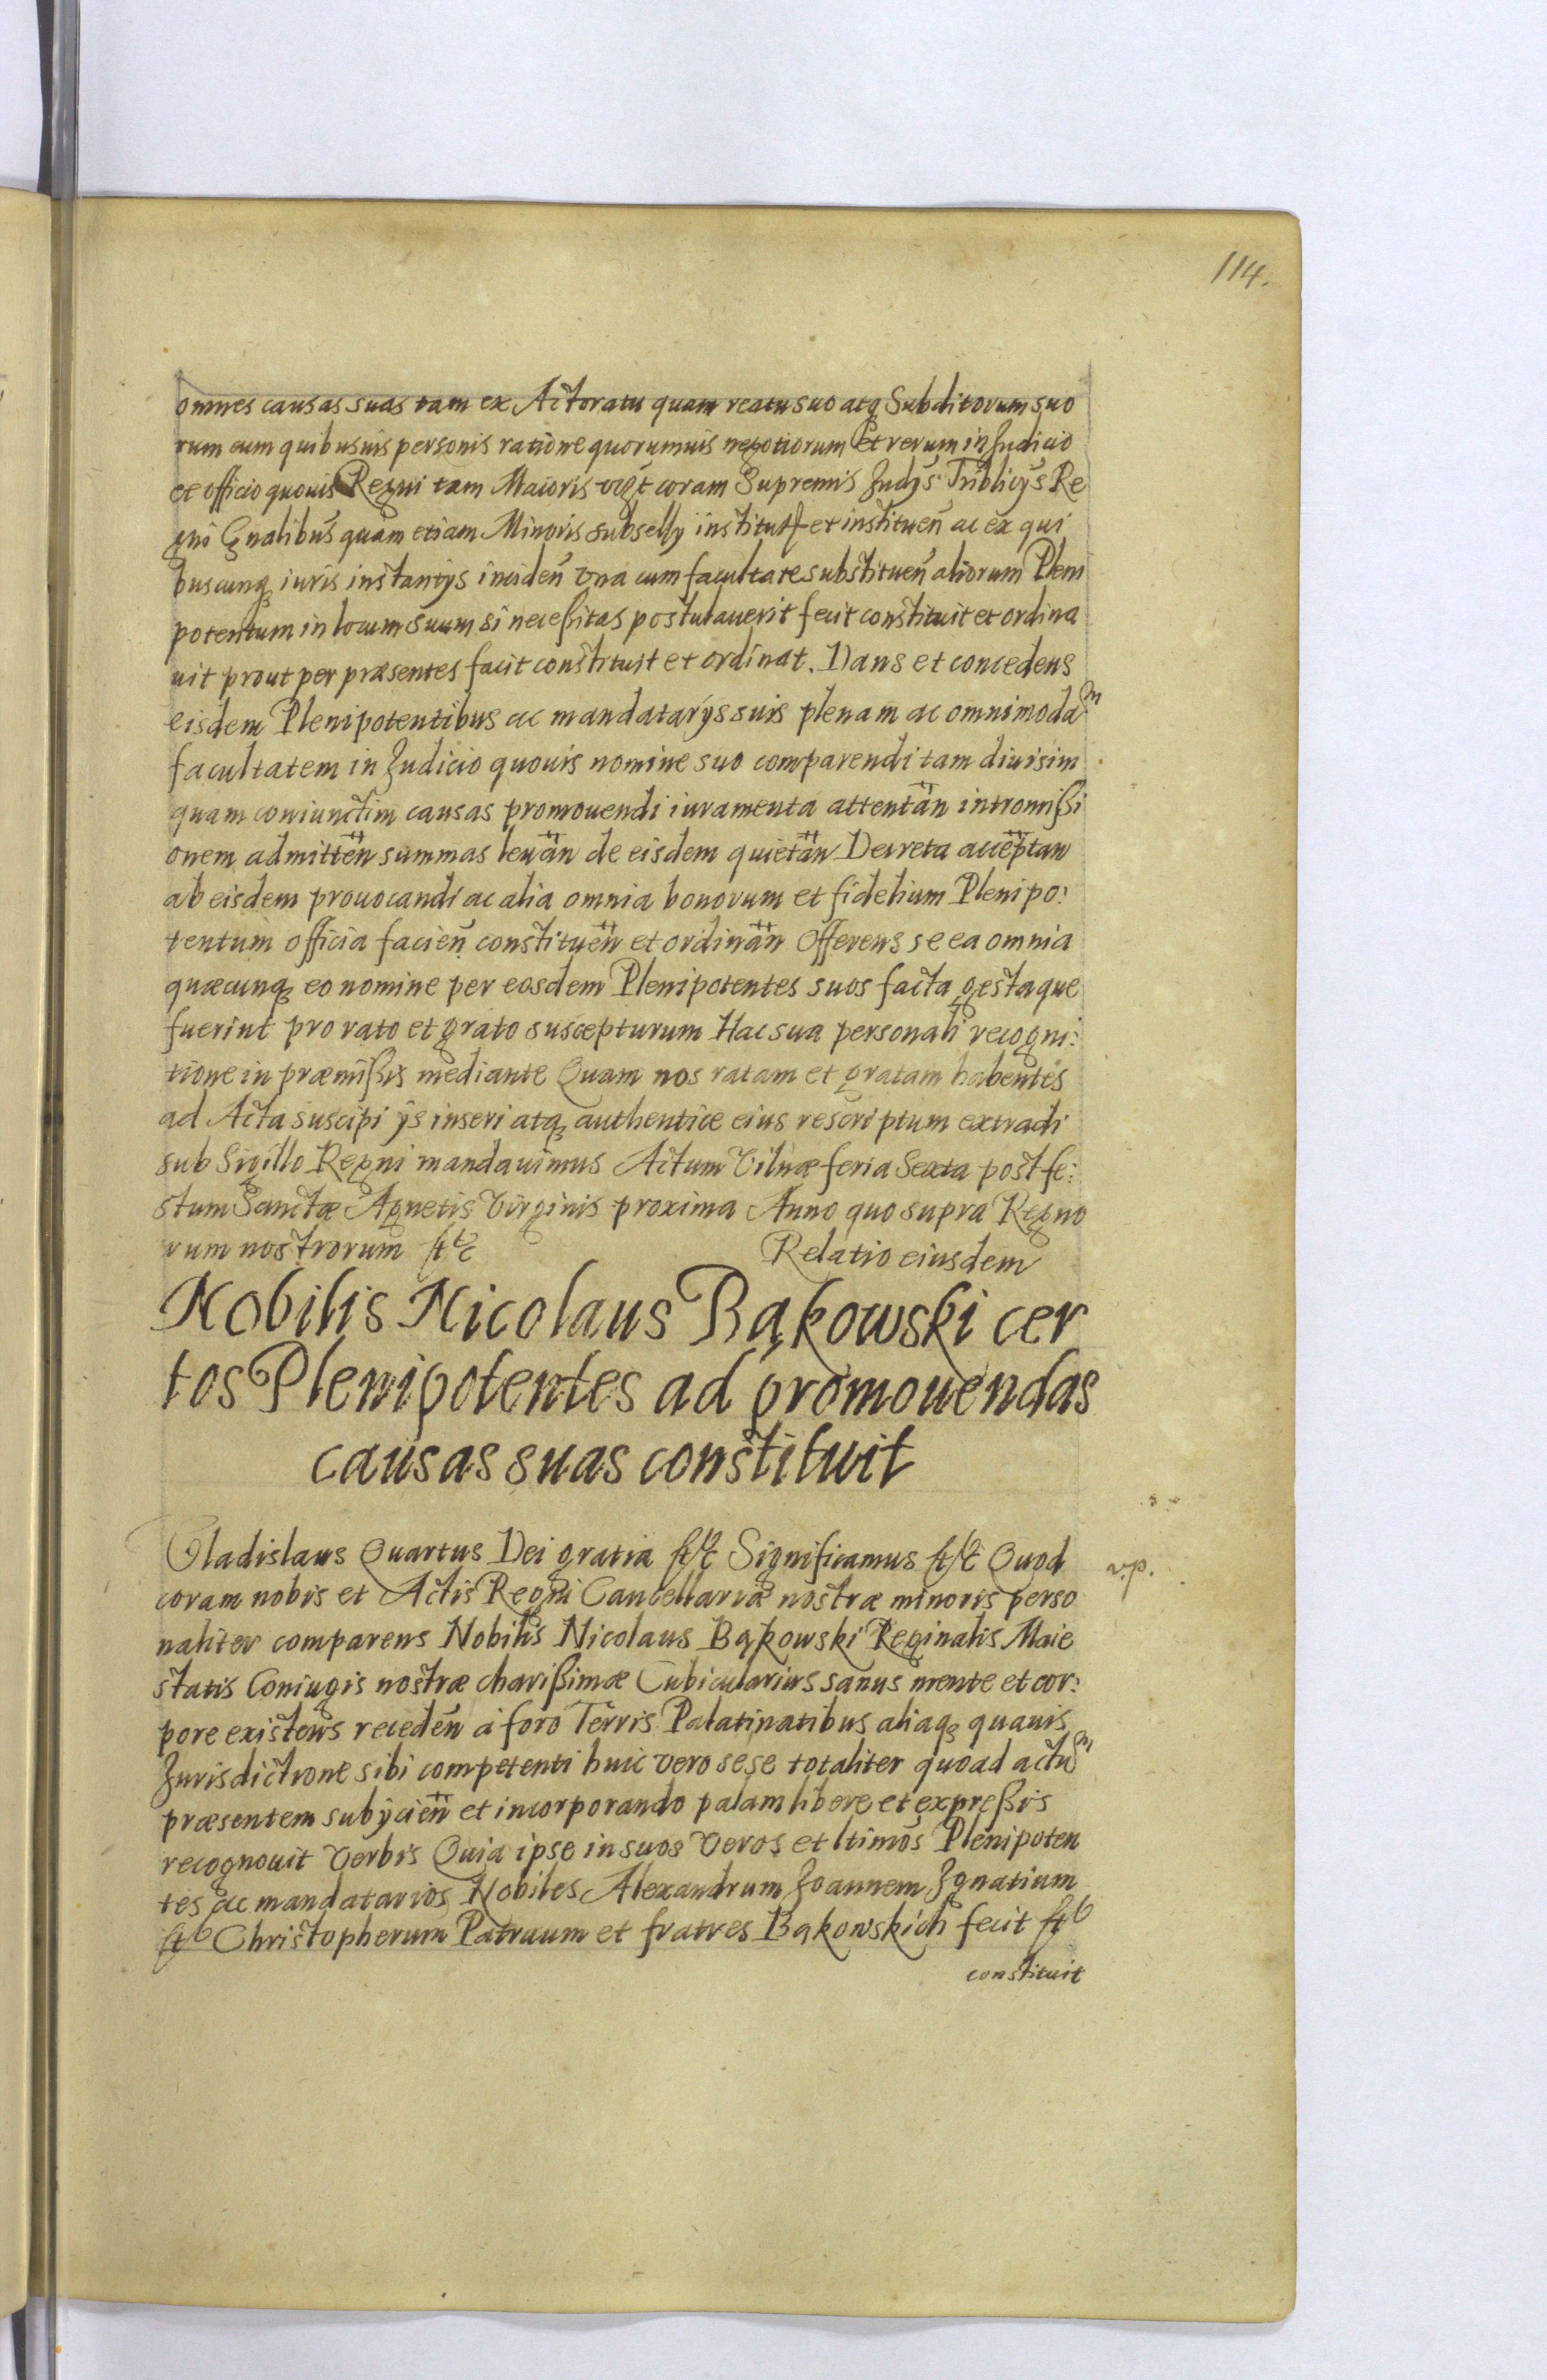 114.
omnes causas suas tam ex Actoratu quam reatu suo atq Subditorum suo
rum cum quibusuis personis ratione quorumuis negotiorum et rerum in Judicio
et officio quouis Regni tam Maioris vigt coram Supremis Judijs Triblicijs Re
gni Gnalibus quam etiam Minoris subselly institut et instituen ac ex qui
buscunq iuris instantijs inciden vna cum facultate substituen aliorum Pleni
potentum in locum suum si necessitas postulauerit fecit constituit et ordina
uit prout per præsentes facit constituit et ordinat. Dans et concedens
eisdem Plenipotentibus ac mandatarijs suis plenam ac omnimodam
facultatem in Judicio quouis nomine suo comparendi tam diuisim
quam coniunctim causas promouendi iuramenta attentan intromissi
onem admitten summas leuan de eisdem quietan Decreta acceptan
ab eisdem prouocandi ac alia omnia bonorum et fidelium Plenipo:
tentum officia facien constituen et ordinan Offerens se ea omnia
quæcunq eo nomine per eosdem Plenipotentes suos facta gestaque
fuerint pro rato et grato suscepturum Hac sua personali recogni:
tione in præmissis mediante Quam nos ratam et gratam habentes
ad Acta suscipi ijs inseri atq authentice eius rescriptum extradi
sub Sigillo Regni mandauimus Actum Vilnæ feria Sexta post fe:
stum Sanctæ Agnetis Virginis proxima Anno quo supra Regno
rum nostrorum etc
Relatio eiusdem
Nobilis Nicolaus Bąkowski cer
tos Plenipotentes ad promouendas
causas suas constituit
Vladislaus Quartus Dei gratia etc Significamus etc Quod
v.p.
coram nobis et Actis Regni Cancellariæ nostræ minoris perso
naliter comparens Nobilis Nicolaus Bąkowski Reginalis Maie
statis Coniugis nostræ charissimæ Cubicularius sanus mente et cor:
pore existens receden à foro Terris Palatinatibus aliaq quauis
Jurisdictione sibi competenti huic vero sese totaliter quoad actum
præsentem subijcien et incorporando palam libere et expressis
recognouit verbis Quia ipse in suos veros et ltimos Plenipoten
tes ac mandatarios Nobiles Alexandrum Joannem Ignatium
et Christopherum Patruum et fratres Bąkowskich fecit et
constituit